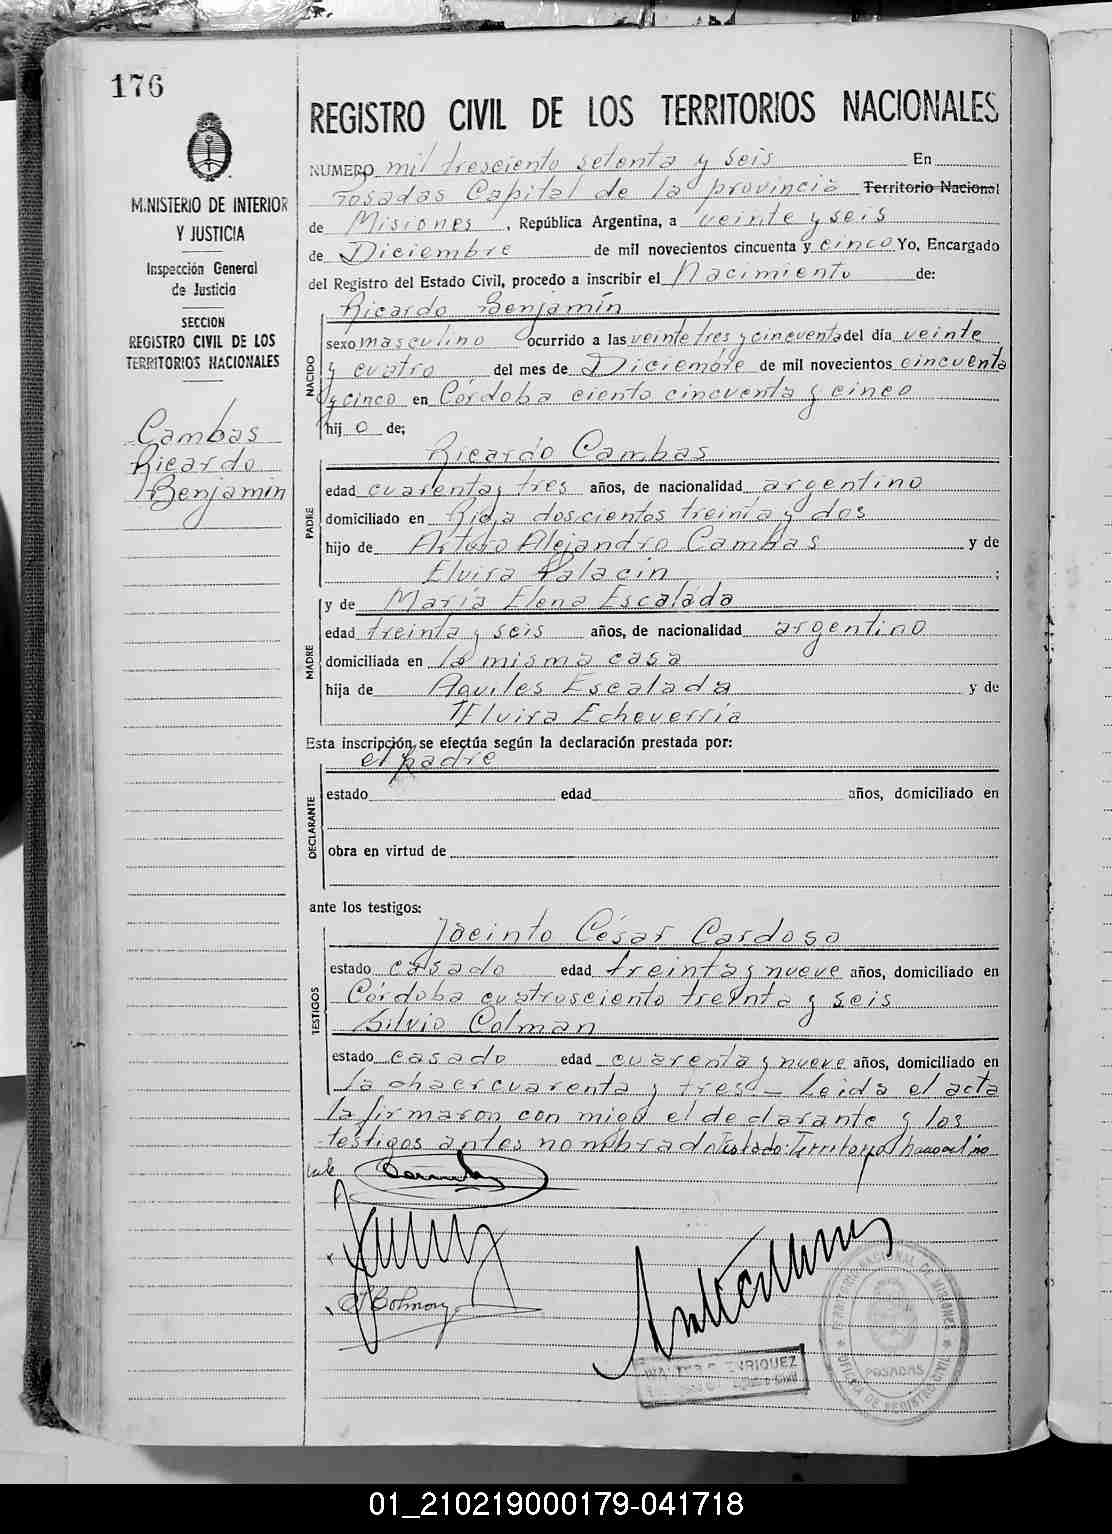 176
MINISTERIO DE INTERIOR
Y JUSTICIA
Inspección General
de Justicia
SECCION
REGISTRO CIVIL DE LOS
TERRITORIOS NACIONALES
Cambas
Ricardo
Benjamin
REGISTRO CIVIL DE LOS TERRITORIOS NACIONALES
NUMERO mil tresciento setenta y seis En
Posadas Capital de la provincia Territorio Nacional
de Misiones, República Argentina, a veinte y seis
de Diciembre de mil novecientos cincuenta y cinco Yo, Encargado
del Registro del Estado Civil, procedo a inscribir el Nacimiento de:
Ricardo Benjamín
NACIDO
sexo masculino ocurrido a las veinte tres y cincuenta del día veinte
y cuatro del mes de Diciembre de mil novecientos cincuenta
y cinco en Córdoba ciento cincuenta y cinco
hij o de;
Ricardo Cambas
PADRE
edad cuarenta y tres años, de nacionalidad argentino
domiciliado en Rioja doscientos treinta y dos
hijo de Arturo Alejandro Cambas y de
Elvira Palacin ;
MADRE
y de María Elena Escalada
edad treinta y seis años, de nacionalidad argentino
domiciliada en la misma casa
hija de Aquiles Escalada y de
Elvira Echeverría
Esta inscripción se efectúa según la declaración prestada por:
el padre
DECLARANTE
estado edad años, domiciliado en
obra en virtud de
ante los testigos:
Jacinto César Cardoso
TESTIGOS
estado casado edad treinta y nueve años, domiciliado en
Córdoba cuatrosciento treinta y seis
Silvio Colman
estado casado edad cuarenta y nueve años, domiciliado en
la chacr cuarenta y tres — Leida el acta
la firmaron con migo el declarante y los
testigos antes nombrado Testado: Territorio Nacional no
vale
WALTER ENRIQUEZ
TERRITORIO NACIONAL DE MISIONES
POSADAS
OFICINA DE REGISTRO CIVIL
01_210219000179-041718